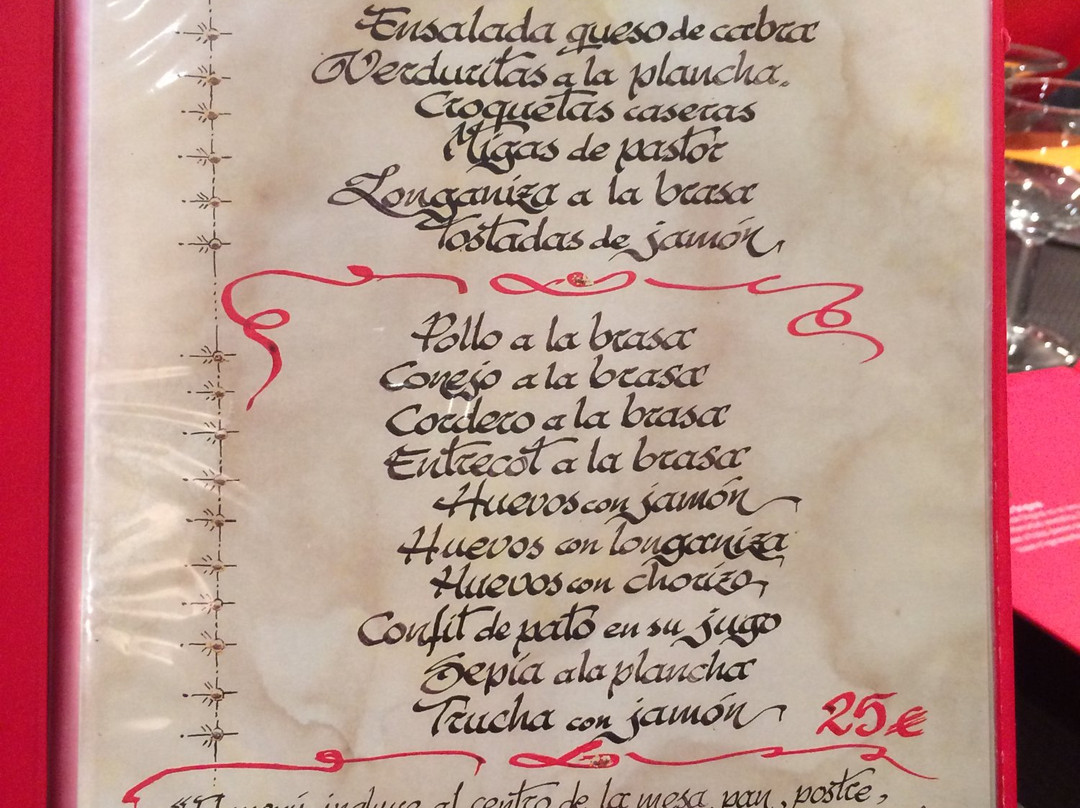 Ensalada queso de cabra
Verduritas a la plancha.
Croquetas caseras
Migas de pastor
Longaniza a la brasa
Tostadas de jamón
Pollo a la brasa
Conejo a la brasa
Cordero a la brasa
Entrecot a la brasa
Huevos con jamón
Huevos con longaniza
Huevos con chorizo
Confit de pato en su jugo
Sepia a la plancha
Trucha con jamón 25€
menú incluye al centro de la mesa, pan, postre,